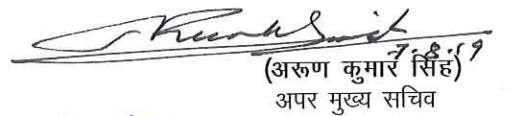 7.8.19
(अरूण कुमार सिंह)
अपर मुख्य सचिव